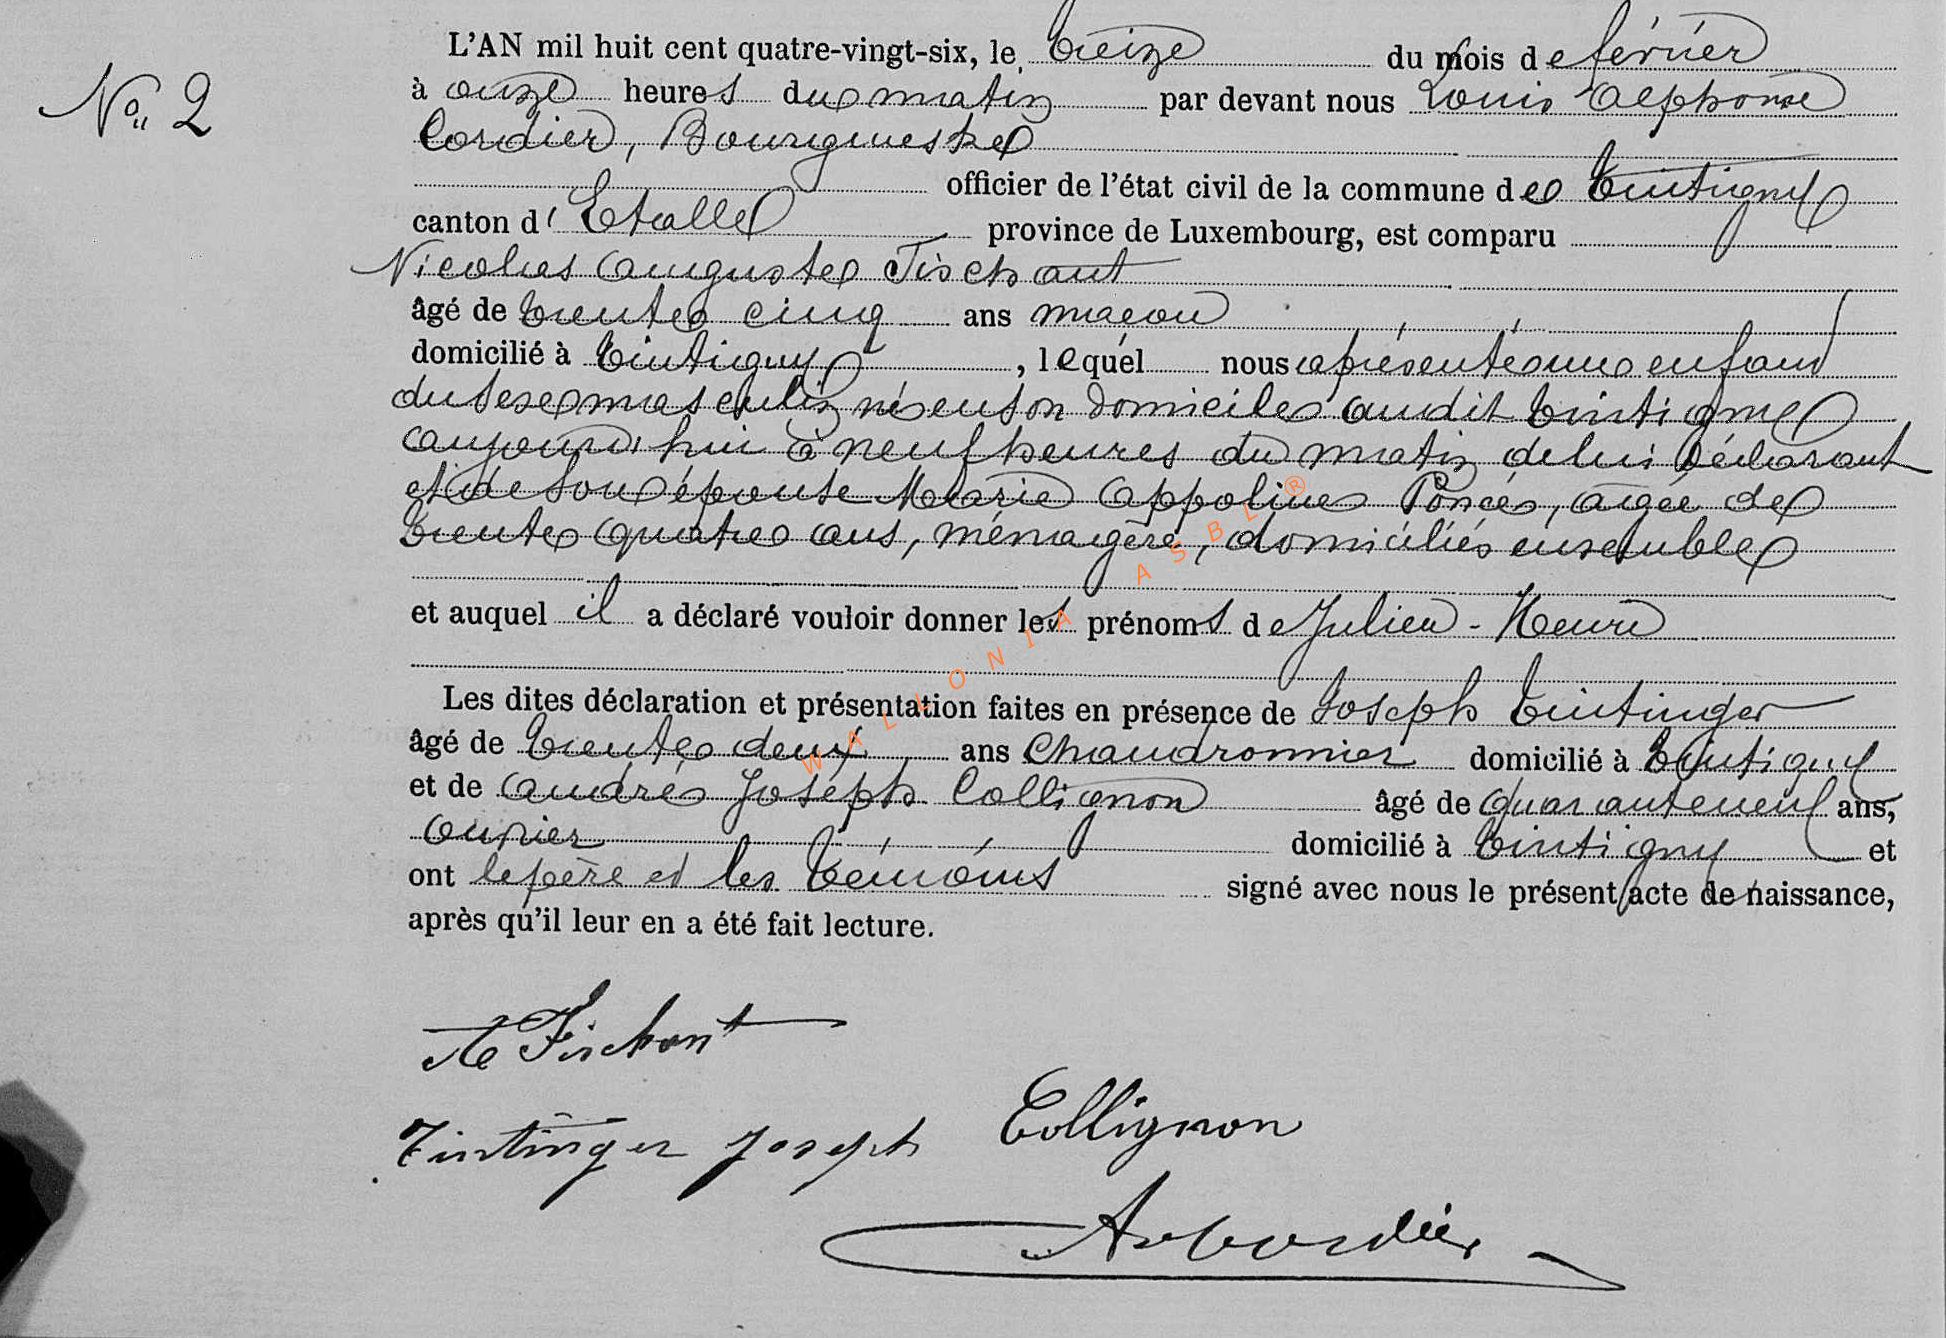 L'AN mil huit cent quatre-vingt-six, le treize du mois de février
No 2
à onze heures du matin par devant nous Louis Alphonse
Cordier, Bourgmestre
officier de l'état civil de la commune de Tintigny
canton d'Etalle province de Luxembourg, est comparu
Nicolas Auguste Fischant
âgé de trente cinq ans maçon
domicilié à Tintigny, lequel nous a présenté un enfant
du sexe masculin né en son domicile audit Tintigny
aujourd'hui à neuf heures du matin de lui déclarant
et de son épouse Marie Appoline Poncé, agée de
trente quatre ans, ménagère, domiciliés ensemble
et auquel il a déclaré vouloir donner les prénoms de Julien - Henri
Les dites déclaration et présentation faites en présence de Joseph Tintinger
âgé de trente deux ans chaudronnier domicilié à Tintigny
et de André Joseph Collignon âgé de quarante neuf ans,
ouvrier domicilié à Tintigny et
ont le père et les témoins signé avec nous le présent acte de naissance,
après qu'il leur en a été fait lecture.
A Fischant
Tintinger Joseph Collignon
Cordier
WALLONIA ASBL ®